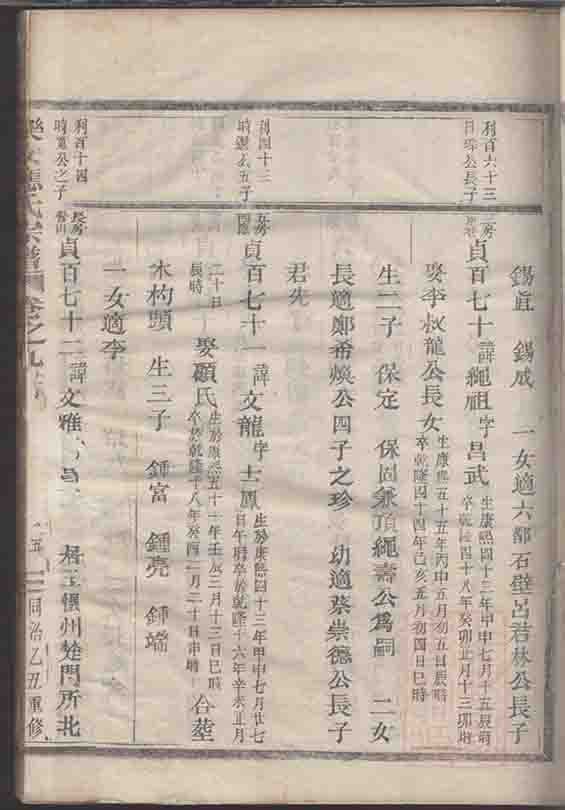 錫眞 錫成 一女適六都石壁呂若林公長子
利百六十三
公長子
房
貞百七十 諱繩祖 字昌武 生康熙四十三年甲申七月十五辰時
卒乾隆四十八年癸卯正月十三卯時
娶李叔龍公長女 生康熙五十五年丙申五月初五日辰時
卒乾隆四十四年己亥五月初四日巳時
生二子 保定 保固兼頂繩壽公爲嗣 二女
長適鄭希煥公四子之珍 幼適蔡崇德公長子
君先
利四十三
時 公五子
房
貞百七十一 諱文龍 字士鳳 生於康熙四十三年甲申七月廿七
日午時卒於乾隆十六年辛未正月
二十日
辰時
娶顧氏 生於康熙五十一年壬辰三月十三日巳時
卒於乾隆十八年癸酉二月二十日申時
合塟
木杓頭 生三子 鍾富 鍾亮 鍾端
一女適李
利百十四
時 公之子
長房
貞百七十二 諱文雅 居玉懷州楚門所北
氏宗譜 卷之九
五
同治乙丑重修